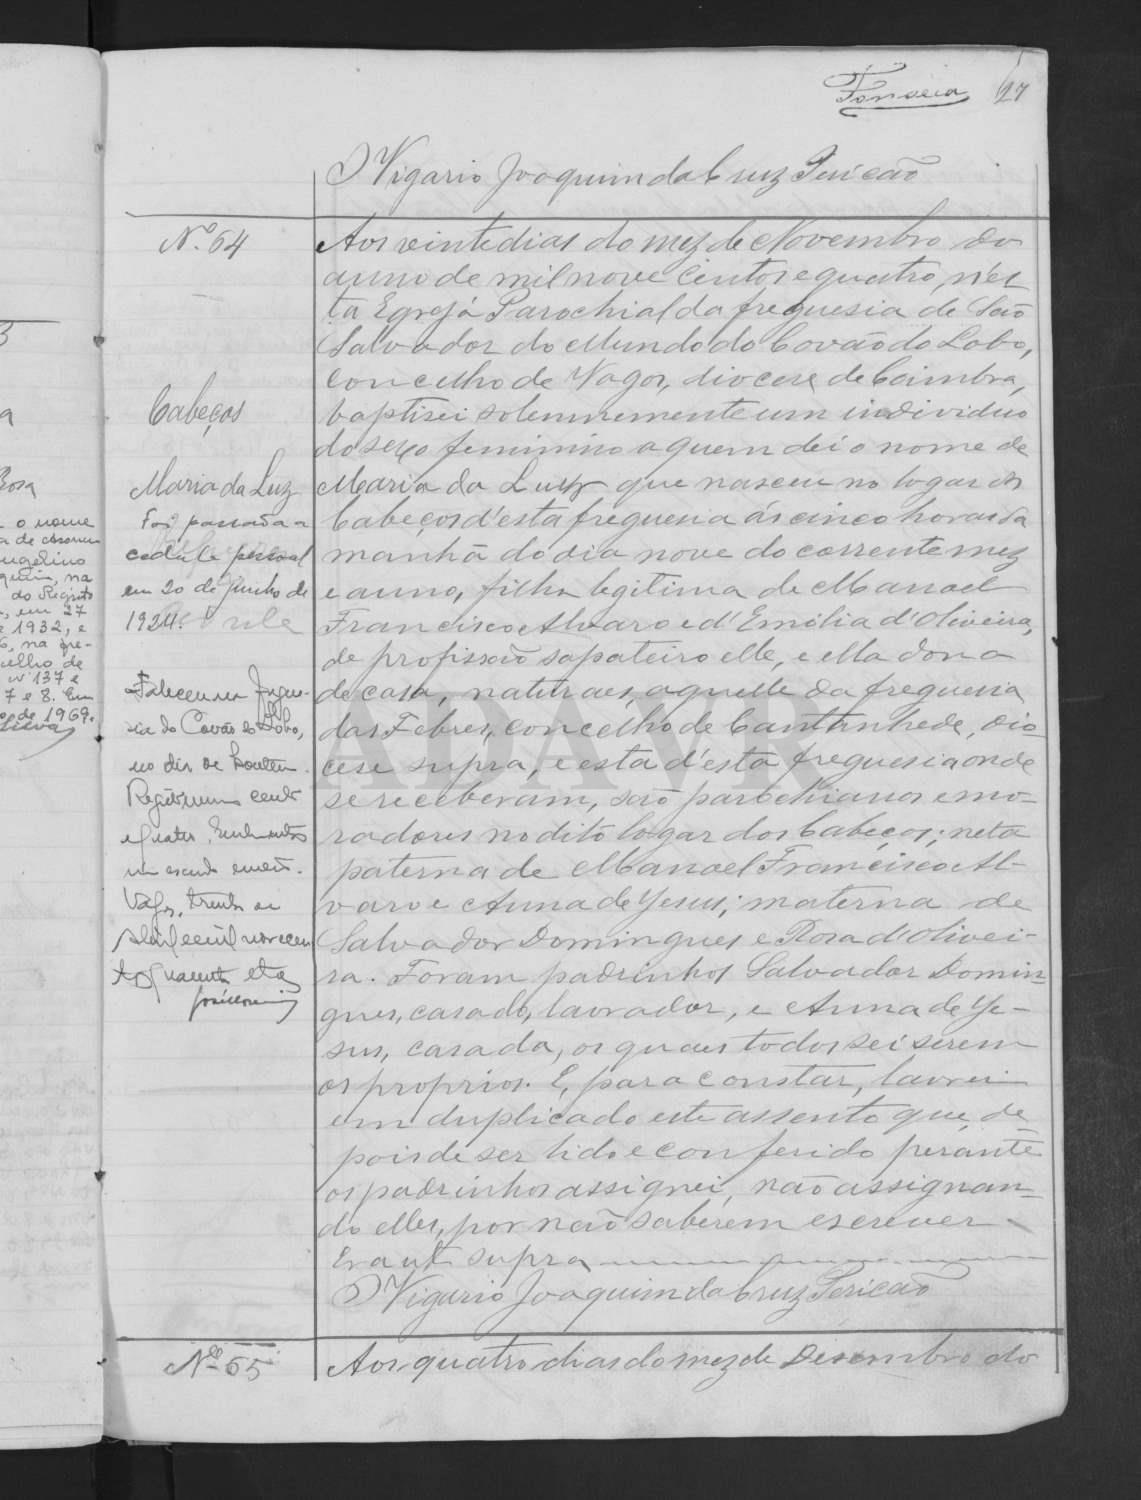 Fonseca 27
O Vigario Joaquim da Cruz Pericão
3
a
Rosa
o nome
ugelino
na
do Registo
em 27
1932, e
na fre-
celho de
nº 137 e
7 e 8. Em
de 1969.
Silva
Nº 54
Cabeços
Maria da Luz
Foi passada a
cedula pessoal
em 20 de Junho de
1924.
Faleceu na fregue-
sia do Covão do Lobo,
no dia de
Registo numero cento
e quatro.
Vagos, trinta de
Abril de mil novecen
tos
Aos vinte dias do mez de Novembro do
anno de mil nove centos e quatro, n'es
ta Egreja Parochial da freguesia de São
Salvador do Mundo do Covão do Lobo,
concelho de Vagos, diocese de Coimbra,
baptisei solemnemente um individuo
do sexo feminino a quem dei o nome de
Maria da Luz que nasceu no logar dos
Cabeços d'esta freguesia ás cinco horas da
manhã do dia nove do corrente mez
e anno, filha legitima de Manoel
Francisco Alvaro e d'Emilia d'Oliveira,
de profissão sapateiro elle, e ella dona
de casa, naturaes, aquelle da freguesia
das Febres, concelho de Cantanhede, dio-
cese supra, e esta d'esta freguesia onde
se receberam, são parochianos e mo-
radores no dito logar dos Cabeços; neta
paterna de Manoel Francisco Al-
varo e Anna de Jesus; materna de
Salvador Domingues e Rosa d'Olivei-
ra. Foram padrinhos Salvador Domin-
gues, casado, lavrador, e Anna de Je-
sus, casada, os quaes todos sei serem
os proprios. E, para constar, lavrei
em duplicado este assento que, de-
pois de ser lido e conferido perante
os padrinhos assignei, não assignan-
do elles, por não saberem escrever.
Era ut supra
O Vigario Joaquim da Cruz Pericão
Nº 55
Aos quatro dias do mez de Desembro do
ADAVR